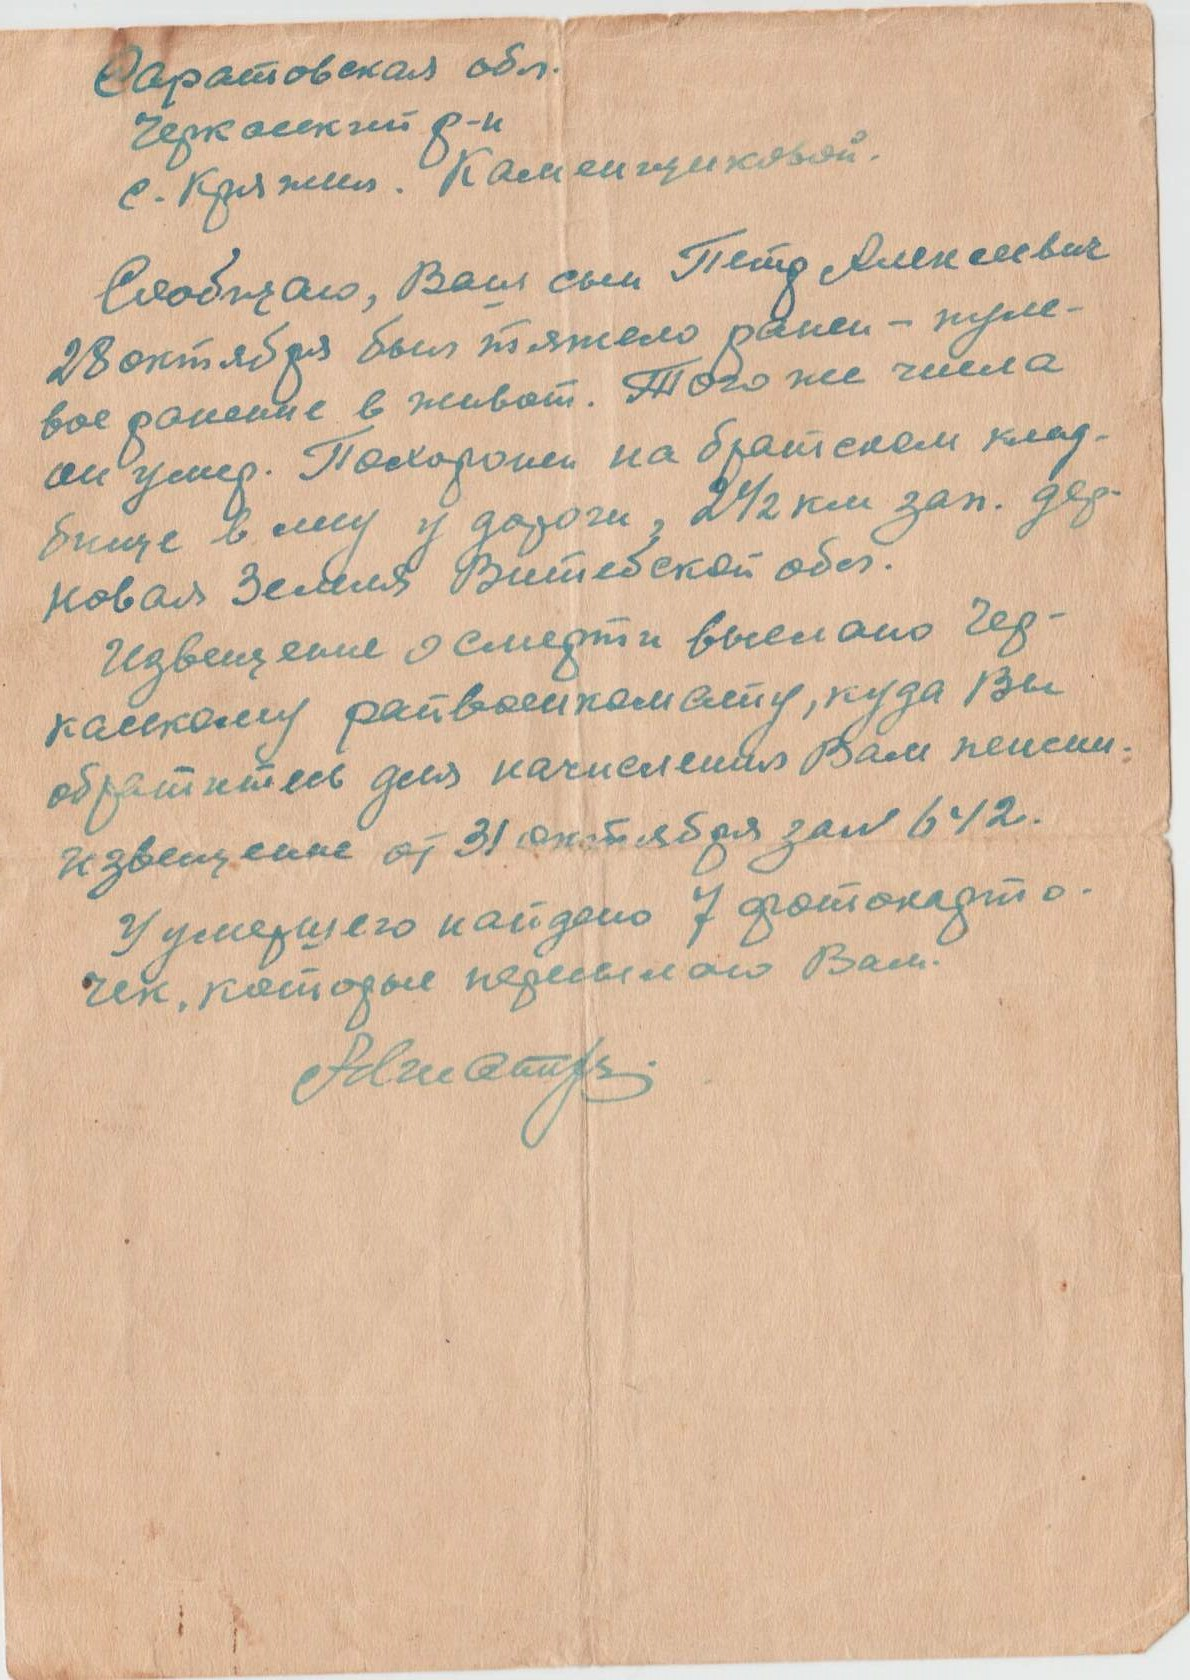 Саратовская обл.
Черкасский р-н
с. Кряжим. Каменщиковой.
Сообщаю, Ваш сын Петр Алексеевич
28 октября был тяжело ранен – пуле-
вое ранение в живот. Того же числа
он умер. Похоронен на братском клад-
бище в лесу у дороги, 2 1/2 км зап. дер.
Новая Земля Витебской обл.
Извещение о смерти выслано Чер-
касскому райвоенкомату, куда Вы
обратитесь для начисления Вам пенсии.
Извещение от 31 октября за № 642.
У умершего найдено 7 фотокарто-
чек, которые пересылаю Вам.